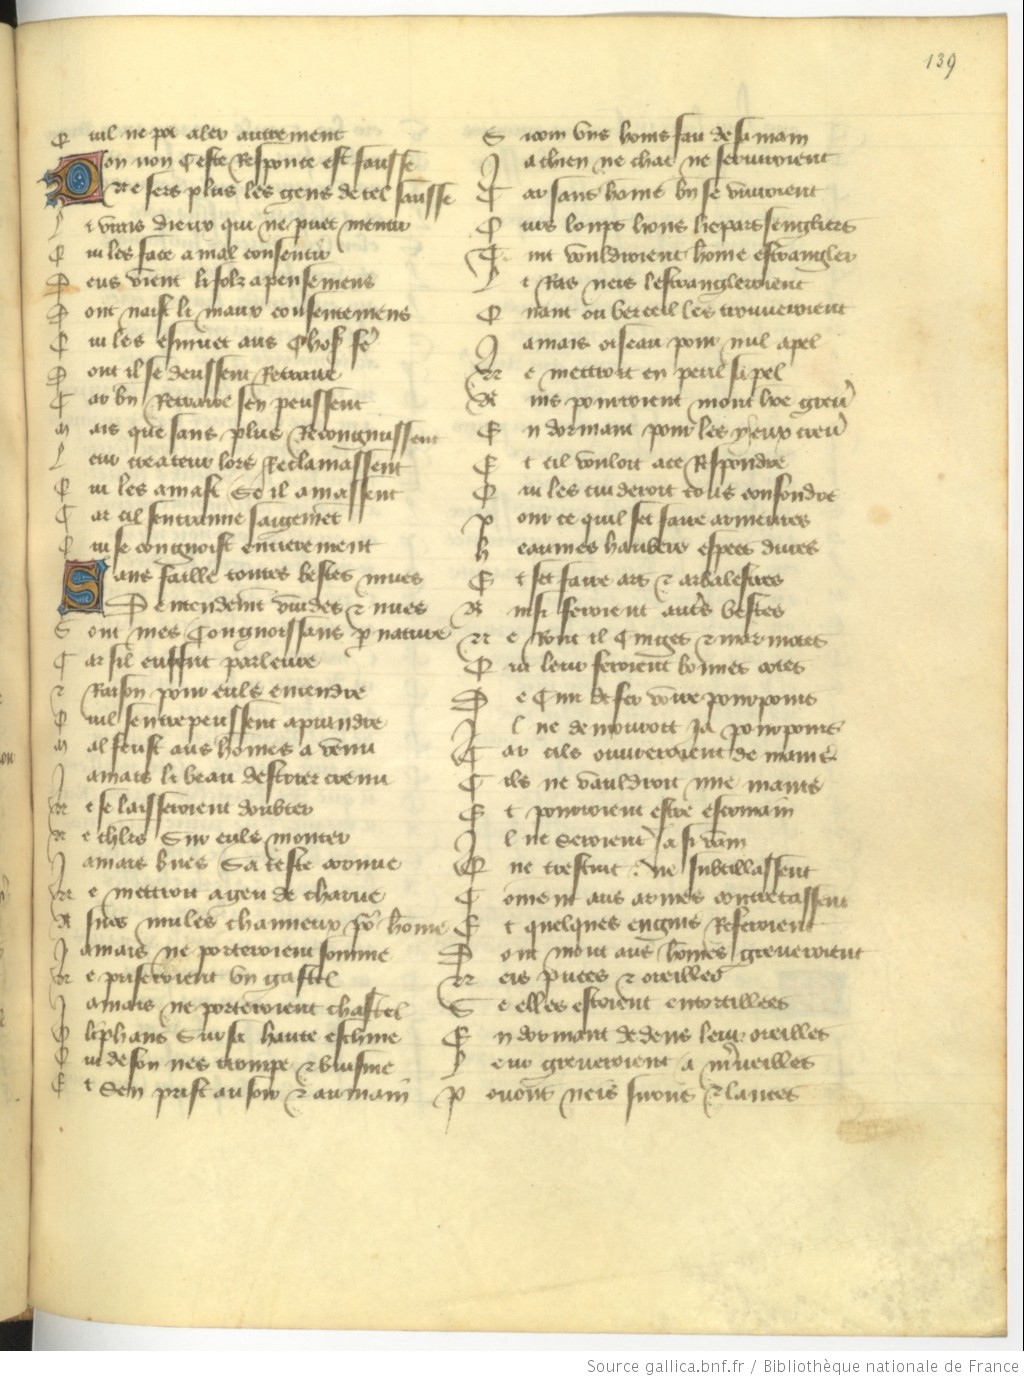 139
Quil ne pot aler autrement
Don non Ceste Response est fausse
Ne sers plus les gens de tel sausse
Li vrais dieux qui ne puet mentir
Qui les face a mal consentir
Deus vient li folz apensemens
Dont naist li maux consentemens
Qui les esmuet aus Chos fe
Dont il se deussent Retraire
Car bn Retraire sen peussent
Mais que sans plus Recongnussent
Leur createur lors Reclamassent
Qui les amast Se il amassent
Car cil sentranne saigemet
Qui se congnoist entierement
Sans faille toutes bestes mues
Dentendemt vuides z nues
Sont mes Congnoissans p nature
Car sil eussent parleure
z Raison pour eulz entendre
Quil sentrepeussent aprandre
Mal feust aus homes a venu
Jamais li beau destrier crenu
Ne se laisseroient doubter
Ne chlrs Sur eulz monter
Jamais bues Sa teste cornue
Ne mettroit a geu de charue
Asnes mules chameux po home
Jamais ne porteroient somme
Ne priseroient un gastel
Jamais ne porteroient chastel
Oliphans Sur sa haute eschine
Qui de son nes trompe z buisine
Et Sen prist au soir z au main
Sicom vns homs fau de sa main
Ja chien ne chat ne seruiroient
Car sans home bn se viuroient
Ours loups lions liepars sengliers
Tuit vouldroient home estrangler
Li Ras neis lestrangleroient
Quant ou berceil les trouueroient
Jamais oiseau pour nul apel
Ne mettroit en peril sa pel
Ains pourroient mout lre greu
En dormant pour les yeux creu
Et cil vouloit ace Respondre
Qui les cuideroit tous confondre
Pour ce quil set faire armeures
Heaumes haubers espees dures
Et set faire ars z arbalestes
Ainsi feroient auts bestes
Ne Ront il Cinges z marmotes
Qui leur feroient bonnes cotes
De Cuir de fer voire pourpoins
Il ne demourroit Ja pourpoins
Car cils ouureroient de mains
Cils ne vauldroit mie mains
Et pourroient estre escriuain
Il ne Seroient Ja si vain
Que trestuit ne subtillassent
Coment aus armes contretassent
Et quelques engins Referoient
Dont mout aus homes greueroient
Neis puces z oreilles
Se elles estoient entortillees
En dormant dedens leur oreilles
Leur greueroient a merueilles